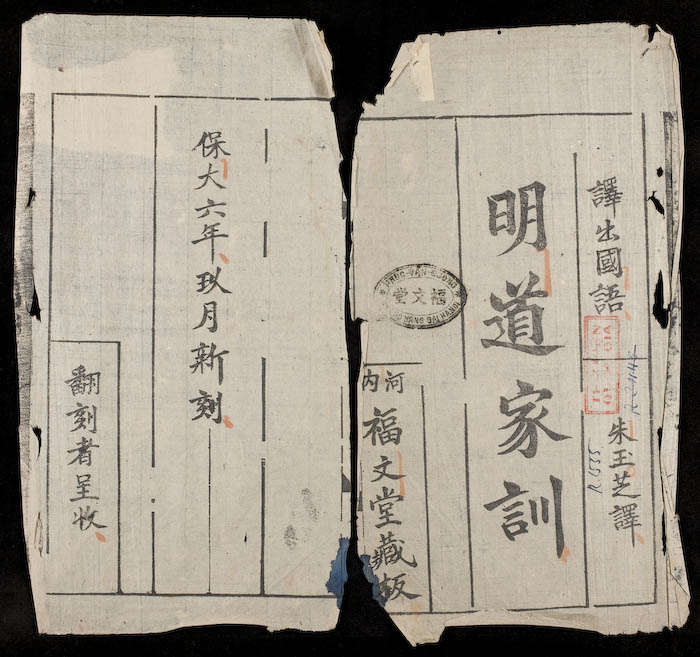 譯出國語
朱玉芝譯
明道家訓
PHUC-VAN-DUONG
福文堂
河内
福文堂藏板
保大六年玖月新刻
翻刻者呈收